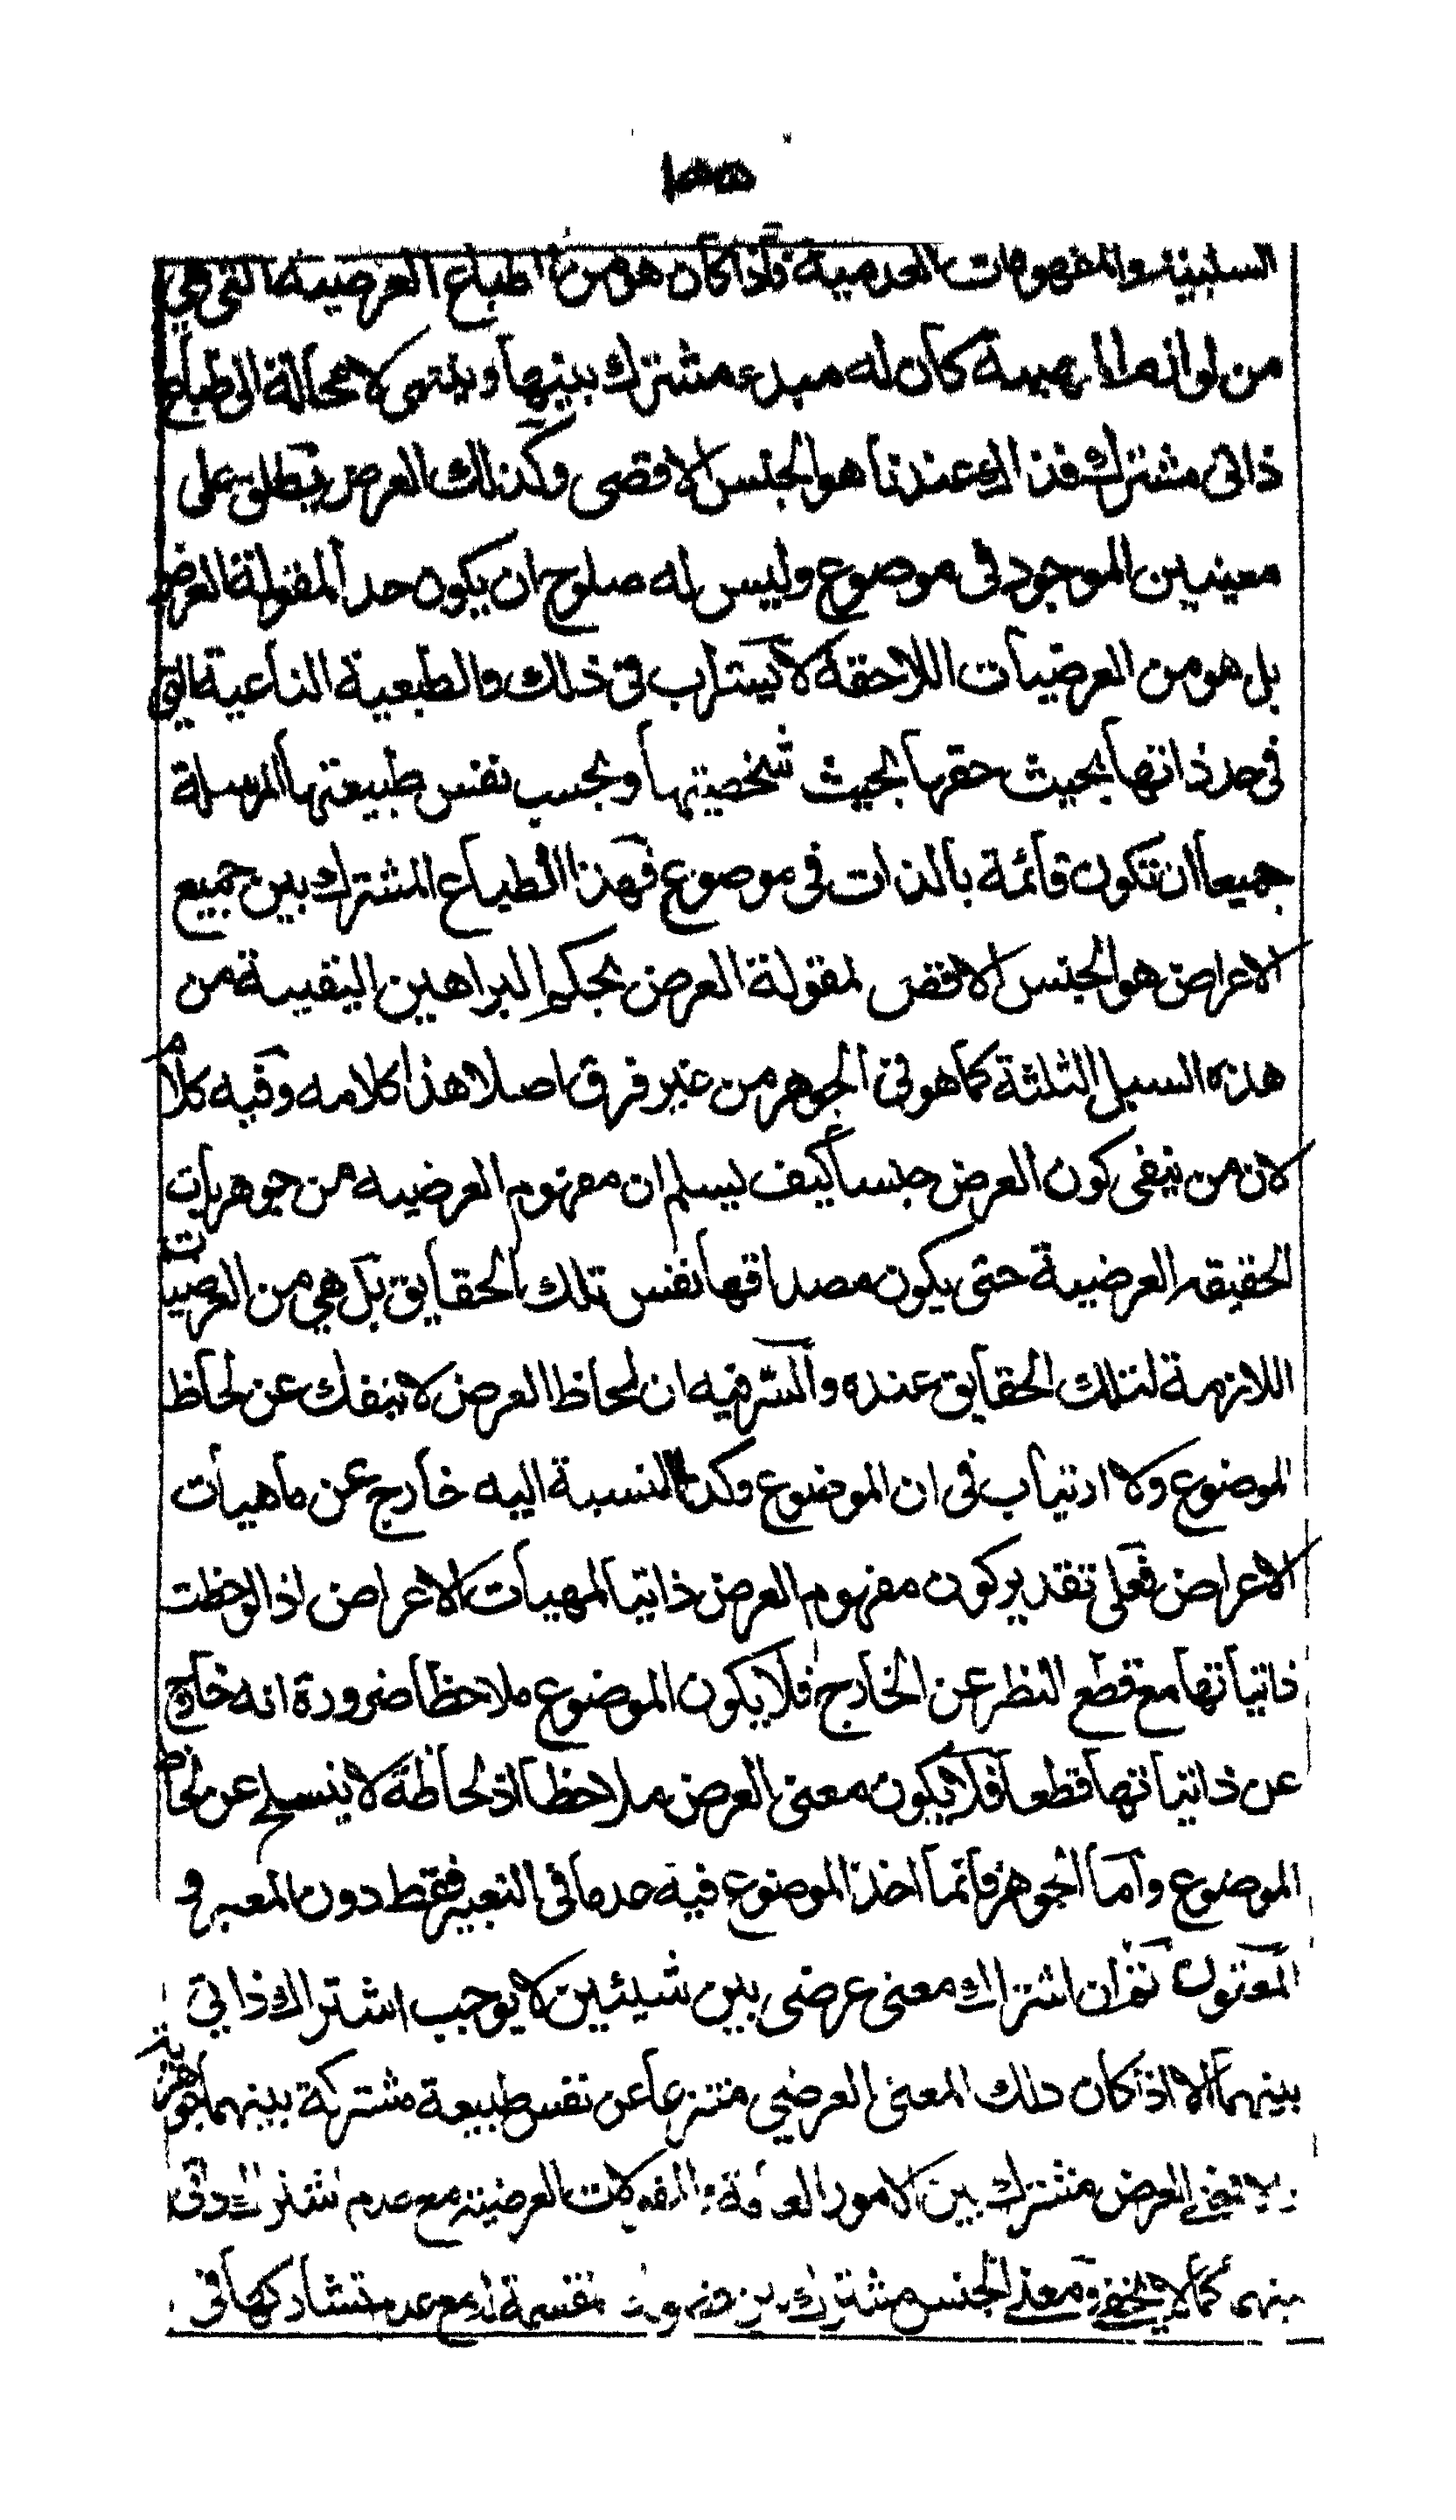 ١٥٥
السلبية والمفهومات العدمية فاذا كان هو من الطباع العرضية التي هي
من لوازم الماهية كان له مبدء مشترك بينها وينتهى لا محالة الى طباع
ذاتى مشترك فذاك عندنا هو الجنس الاقصى وكذلك العرض يطلق على
معنيين الموجود فى موضوع وليس له صلوح ان يكون حدا لمقولة العرض
بل هو من العرضيات اللاحقة لا يستراب فى ذلك والطبعية الناعتية التى
فى حد ذاتها بحيث حقها بحيث شخصيتها وبحسب نفس طبيعتها المرسلة
جميعا ان تكون قائمة بالذات فى موضوع فهذا الطباع المشترك بين جميع
الاعراض هو الجنس الاقصى لمقولة العرض بحكم البراهين اليقينية من
هذه السبل الثلثة كما هو فى الجوهر من غير فرق اصلا هذا كلامه وفيه كلام
لان من ينفى كون العرض جنسا كيف يسلم ان مفهوم العرضية من جوهريات
الحقيقة العرضية حتى يكون مصداقها نفس تلك الحقايق بل هي من العرضيات
اللازمة لتلك الحقايق عنده والسر فيه ان لحاظ العرض لا ينفك عن لحاظ
الموضوع ولا ارتياب فى ان الموضوع وكذا النسبة اليه خارج عن ماهيات
الاعراض فعلى تقدير كون مفهوم العرض ذاتيا لمهيات الاعراض اذا لوحظت
ذاتياتها مع قطع النظر عن الخارج فلا يكون الموضوع ملاحظا ضرورة انه خارج
عن ذاتياتها قطعا فلا يكون معنى العرض ملاحظا اذ لحاظه لا ينسلخ عن لحاظ
الموضوع واما الجوهر فانما اخذ الموضوع فيه عدما فى التعبير فقط دون المعبر و
المعنون ثم ان اشتراك معنى عرضى بين شيئين لا يوجب اشتراك ذاتي
بينهما الا اذا كان ذلك المعنى العرضي منتزعا عن نفس طبيعة مشتركة بينهما جوهرية
العرض مشترك بين الامور العامة والمقولات العرضية مع عدم اشتراك ذاتى
بينهما كما لا يخفى ومعنى الجنس مشترك بين مع عدم تشاركها فى